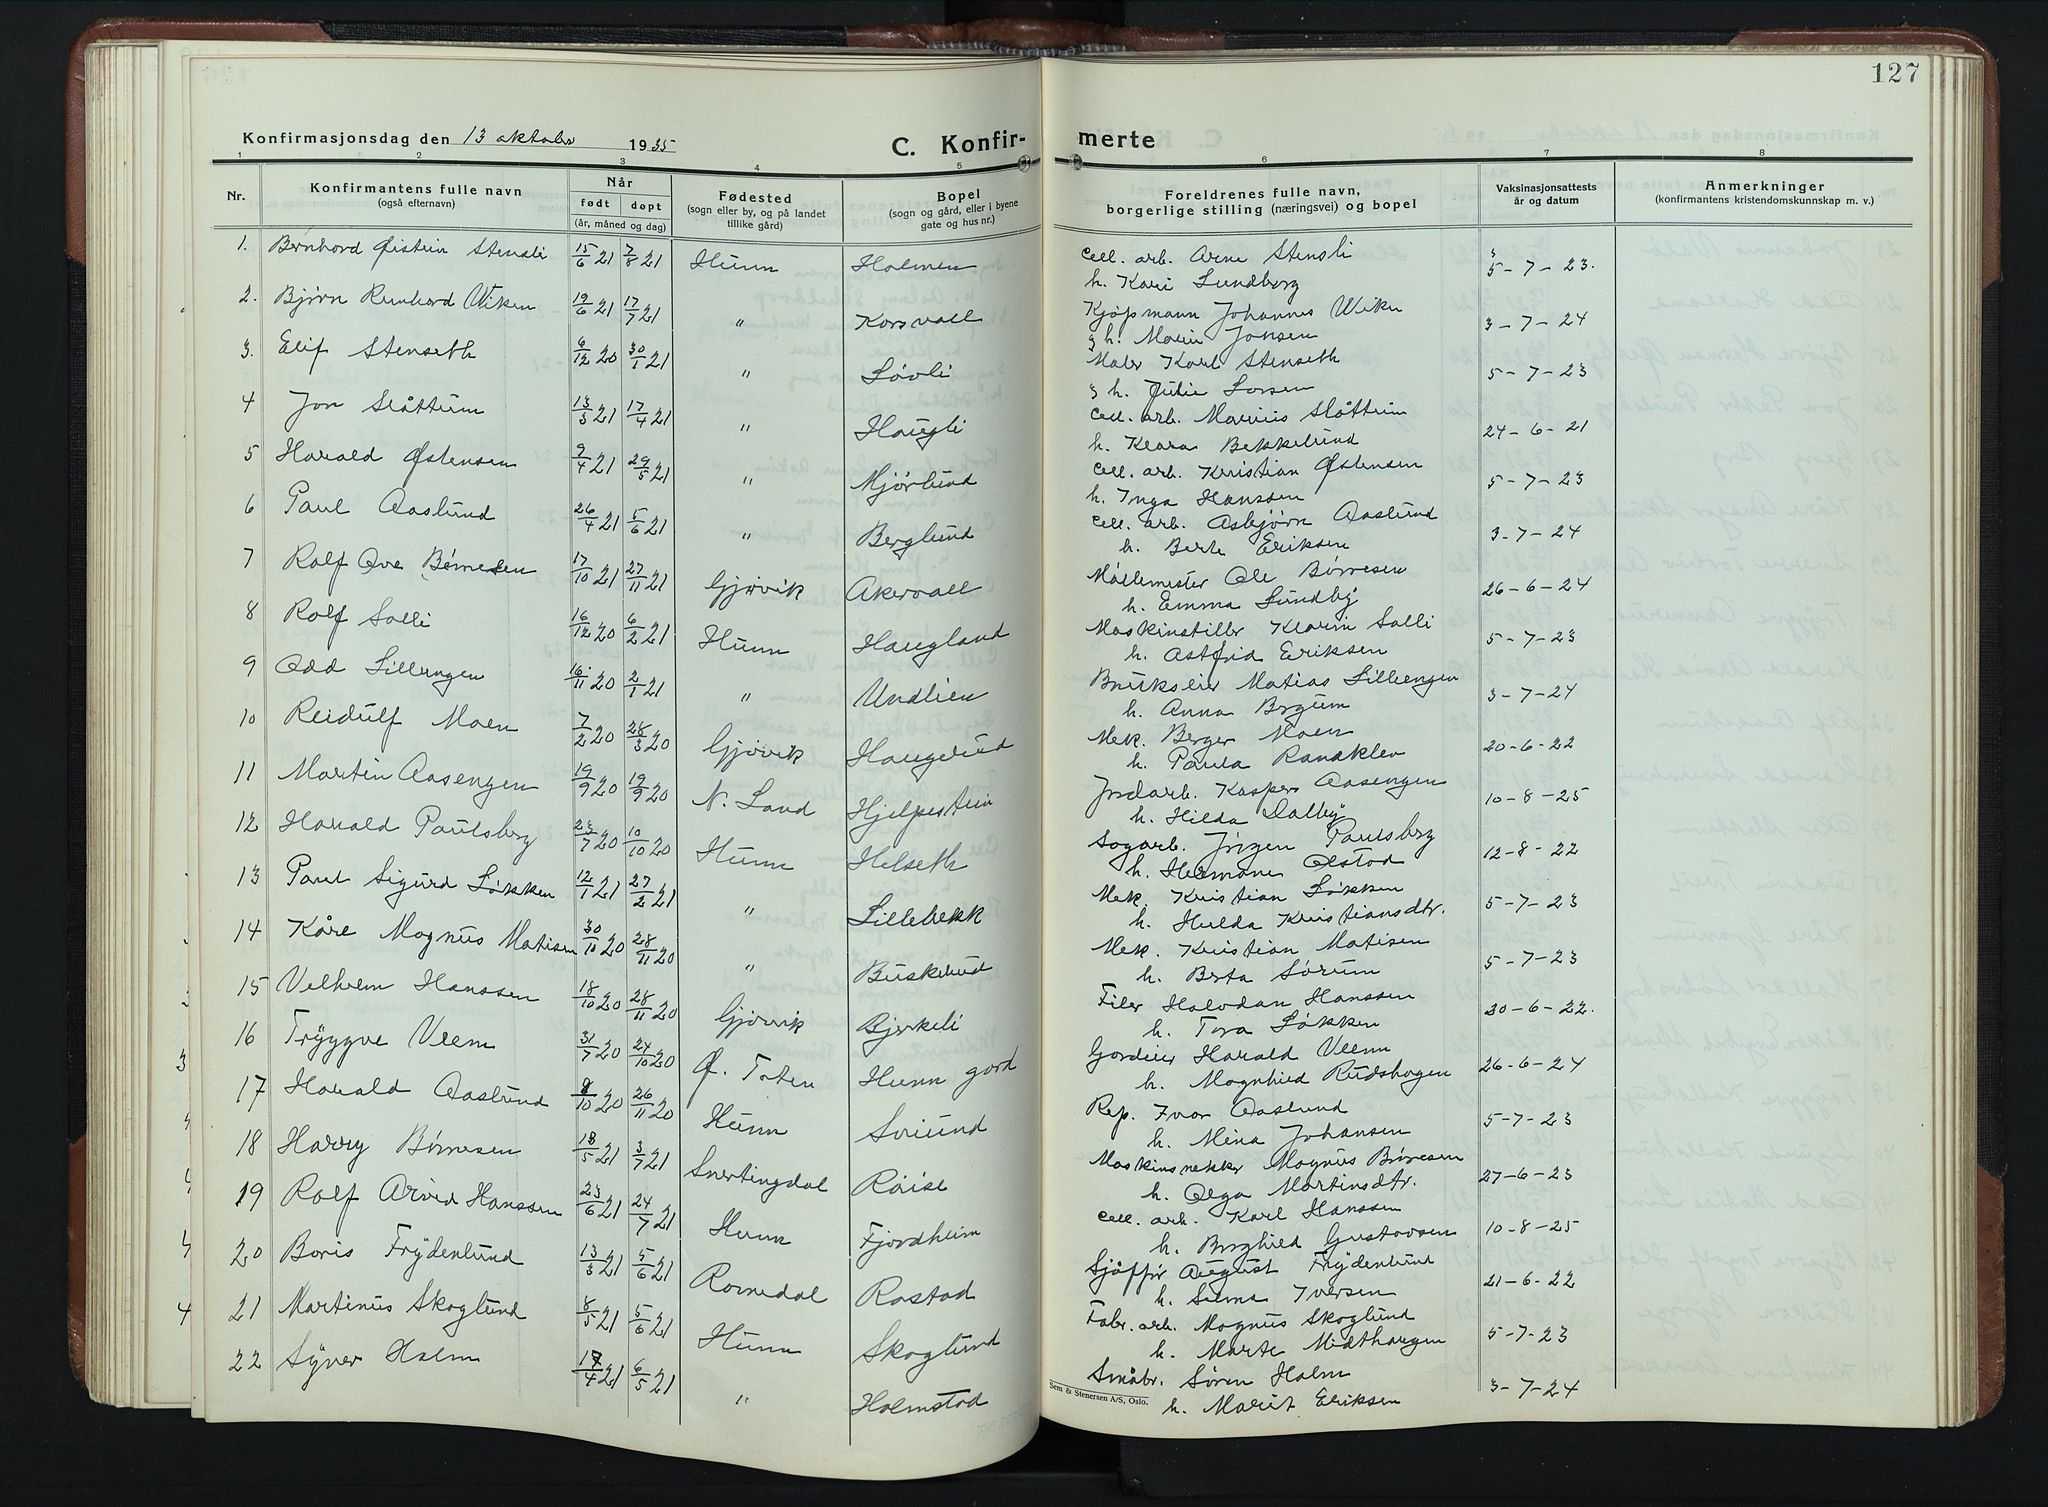 127
Konfirmasjonsdag den 13 oktober 1935
C. Konfir-
merte
1 2 3 4 5 6 7 8
Nr.
Konfirmantens fulle navn
(også efternavn)
Når
født døpt
(år, måned og dag)
Fødested
(sogn eller by, og på landet
tillike gård)
Bopel
(sogn og gård, eller i byene
gate og hus nr.)
Foreldrenes fulle navn,
borgerlige stilling (næringsvei) og bopel
Vaksinasjonsattests
år og datum
Anmerkninger
(konfirmantens kristendomskunnskap m. v.)
1. Bernhard Øistein Stensli 15/6 21 7/8 21 Hunn Holmen cell. arb. Arne Stensli 5-7-23.
h. Kari Lundberg
2. Bjørn Reinhard Wiken 19/6 21 17/7 21 " Korsvoll Kjøpmann Johannes Wiken 3-7-24
h. Marie Jonsen
3. Elif Stenseth 6/12 20 30/1 21 " Løvli Maler Karl Stenseth 5-7-23
h. Julie Larsen
4 Jon Slåttum 13/3 21 17/4 21 " Haugli cell. arb. Marius Slåttum 24-6-21
h. Klara Bekkelund
5 Harald Østensen 9/4 21 29/5 21 " Mjørlund cell. arb. Kristian Østensen 5-7-23
h. Inga Hanssen
6 Paul Aaslund 26/4 21 5/6 21 " Berglund cell. arb. Asbjørn Aaslund 3-7-24
h. Berte Eriksen
7 Rolf Ove Børresen 17/10 21 27/11 21 Gjøvik Akervall Møllemester Ole Børresen 26-6-24
h. Emma Lundby
8 Rolf Solli 16/12 20 6/2 21 Hunn Haugland Maskinstiller Klarin Solli 5-7-23
h. Astrid Eriksen
9 Odd Lillengen 16/11 20 2/1 21 " Undlien Brukseier Matias Lillengen 3-7-24
h. Anna Bergum
10 Reidulf Moen 7/2 20 28/3 20 Gjøvik Haugerud Mek. Berger Moen 20-6-22
h. Paula Randklev
11 Martin Aasengen 19/9 20 19/9 20 N. Land Hjelpestein Jordarb. Kasper Aasengen 10-8-25
h. Hilda Dalby
12 Harald Paulsberg 23/7 20 10/10 20 Hunn Helseth Sagarb. Jørgen Paulsberg 12-8-22
h. Hermane Olstad
13 Paul Sigurd Løkken 12/1 21 27/2 21 " Lillebekk Mek. Kristian Løkken 5-7-23
h. Hulda Kristiansdtr.
14 Kåre Magnus Matisen 30/10 20 28/11 20 " Buskerud Mek. Kristian Matisen 5-7-23
h. Berta Sørum
15 Vilhelm Hanssen 18/10 20 28/11 20 Gjøvik Bjerkeli Filer Halvdan Hanssen 30-6-22.
h. Tora Løkken
16 Tryggve Veem 31/7 20 24/10 20 Ø. Toten Hunn gård Gardeier Harald Veem 26-6-24
h. Magnhild Rudshagen
17 Harald Aaslund 8/10 20 26/11 20 Hunn Sörlund Rep. Ivar Aaslund 5-7-23
h. Mina Johansen
18 Harry Børresen 18/5 21 3/7 21 Snertingdal Røise Maskinsnekker Magnus Børresen 27-6-23
h. Olga Martinsdtr.
19 Rolf Arvid Hanssen 23/6 21 24/7 21 Hunn Fjordheim cell. arb. Karl Hanssen 10-8-25
h. Borghild Gustavsen
20 Boris Frydenlund 13/3 21 5/6 21 Romedal Rostad Sjåffør August Frydenlund 21-6-22
h. Selma Iversen
21 Martinus Skoglund 8/5 21 5/6 21 Hunn Skoglund Fabr. arb. Magnus Skoglund 5-7-23
h. Marte Midthaugen
22 Syver Holm 17/4 21 6/5 21 " Holmstad Småbr. Søren Holm 3-7-24
h. Marit Eriksen
Sem & Stenersen A/S, Oslo.